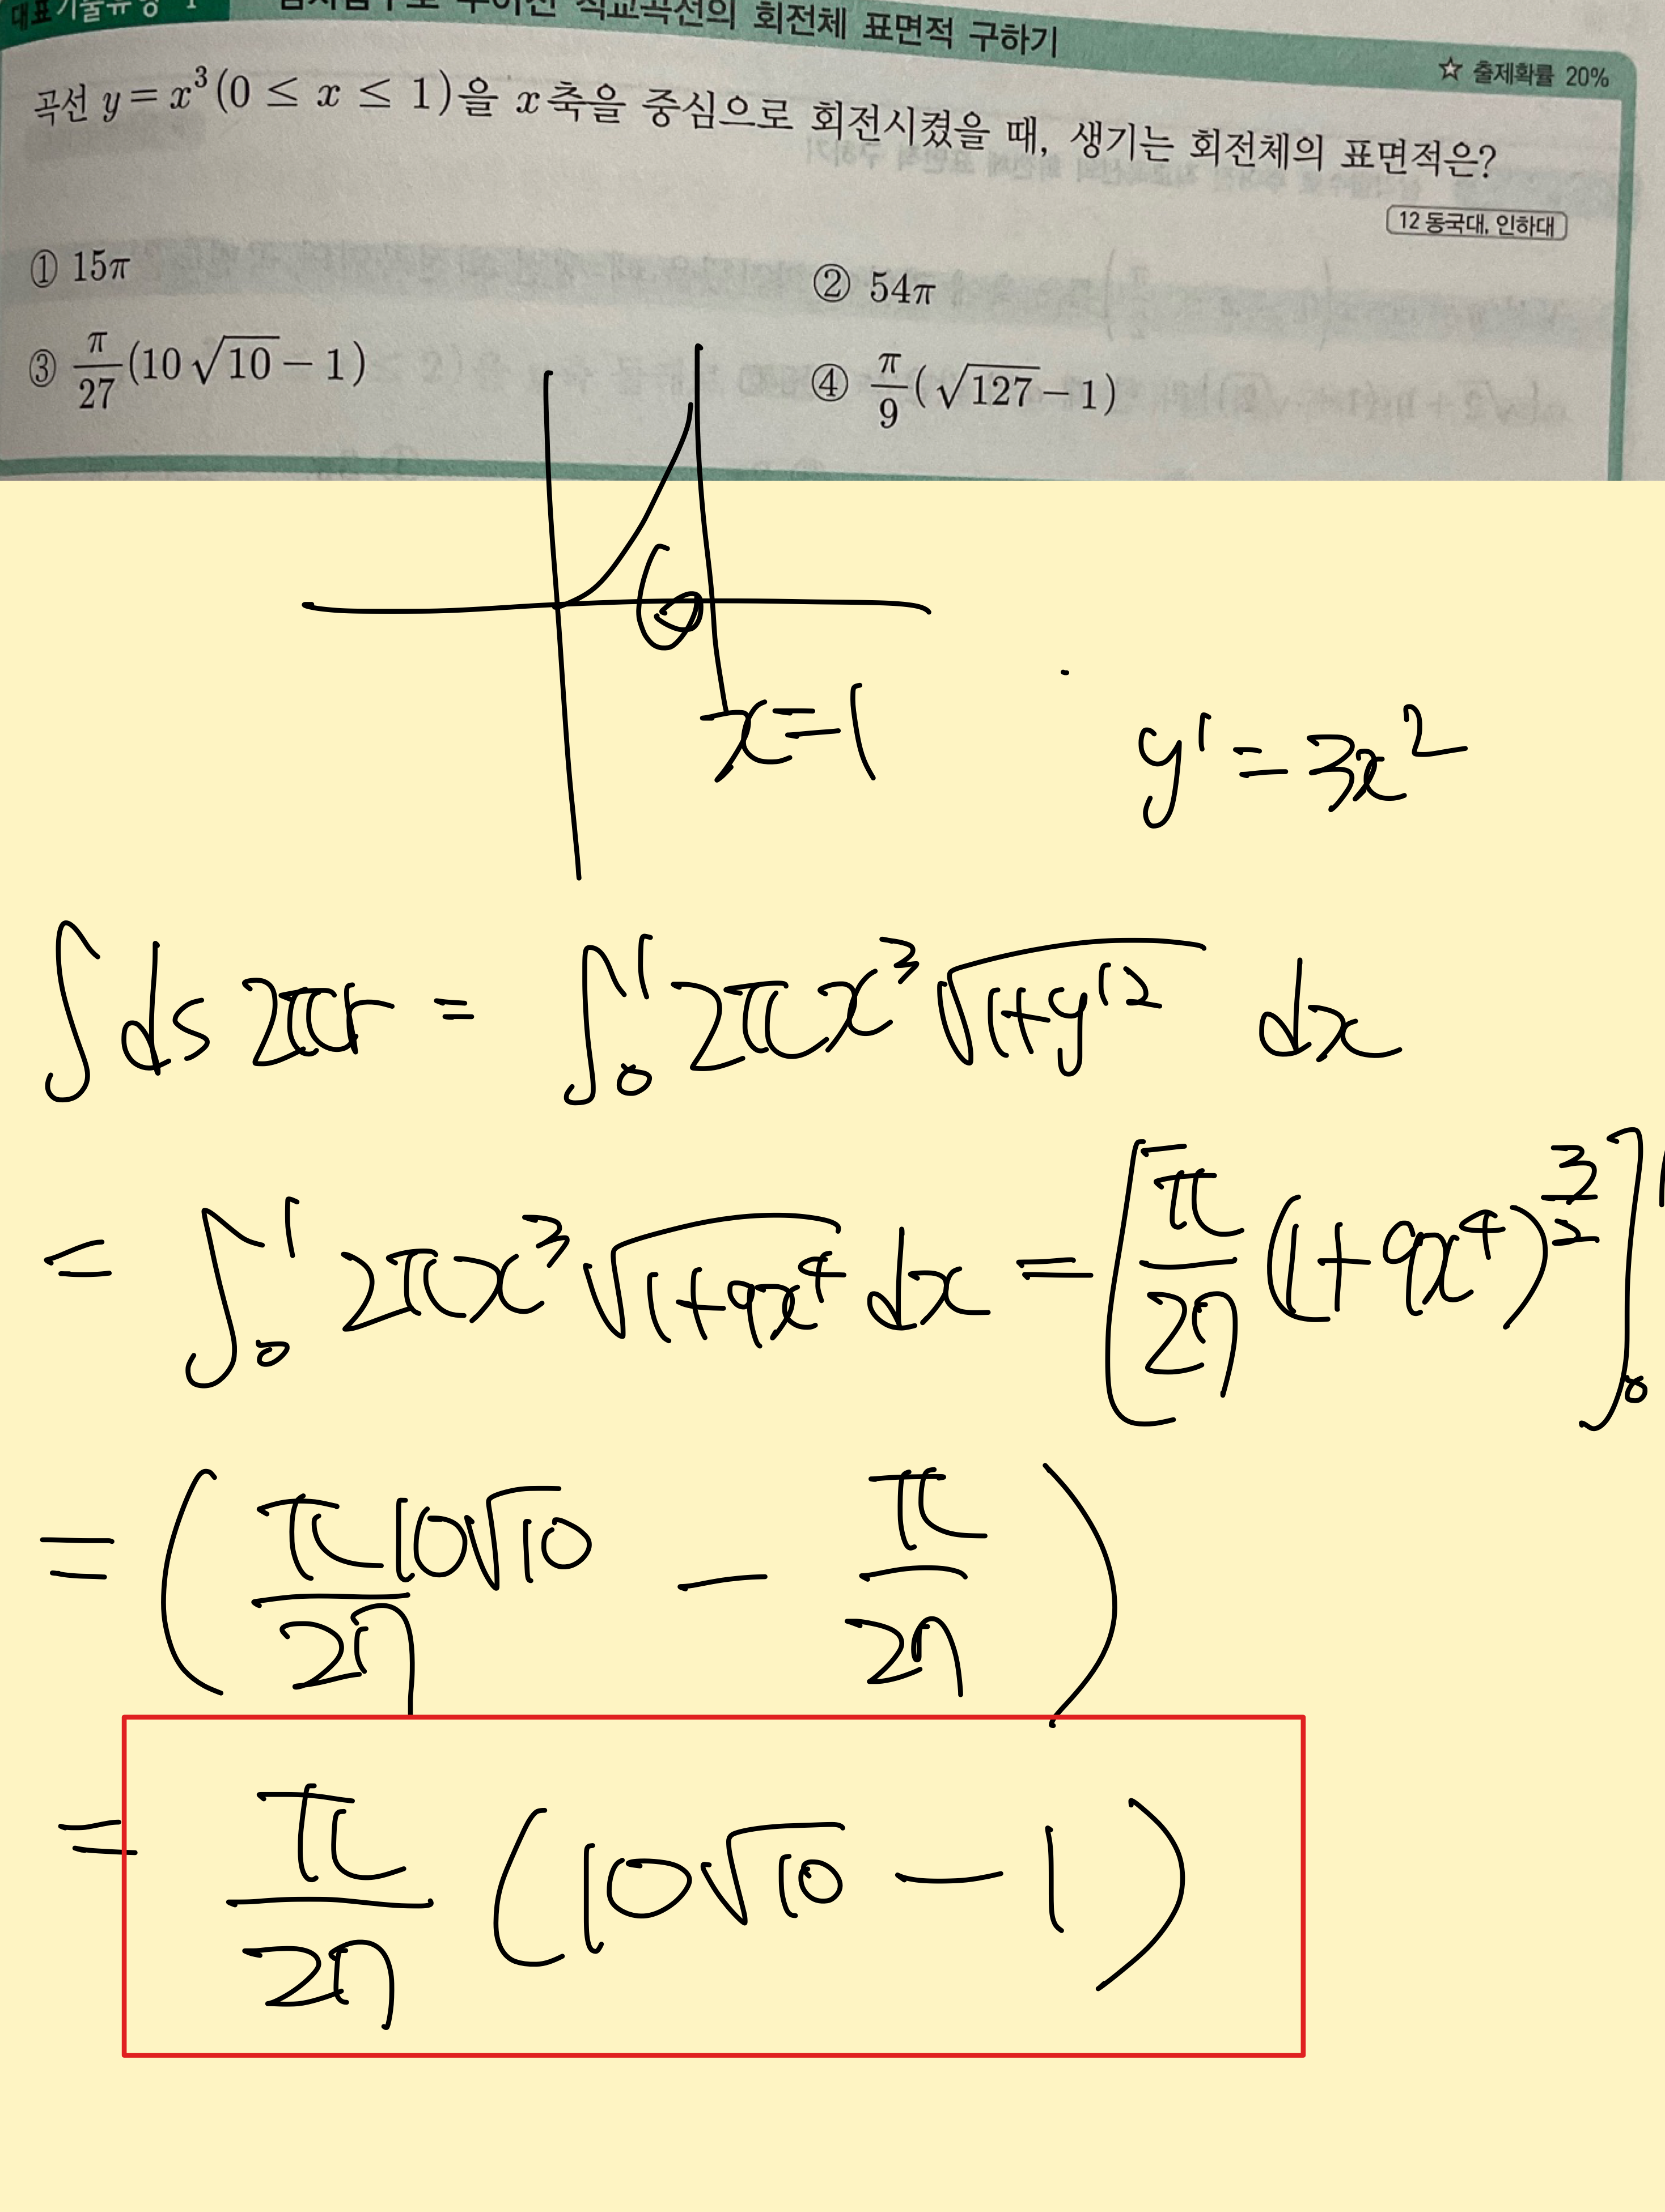 대표기출유형 1 직교곡선의 회전체 표면적 구하기
☆ 출제확률 20%
곡선 y = x³ (0 ≤ x ≤ 1)을 x축을 중심으로 회전시켰을 때, 생기는 회전체의 표면적은?
12 동국대, 인하대
① 15π ② 54π
③ π/27 (10√10 − 1) ④ π/9 (√127 − 1)
x=1
y' = 3x²
∫ds 2πr = ∫₀¹ 2πx³ √(1+y'²) dx
= ∫₀¹ 2πx³ √(1+9x⁴) dx = [π/27 (1+9x⁴)^(3/2)]₀¹
= (π10√10/27 − π/27)
= π/27 (10√10 − 1)